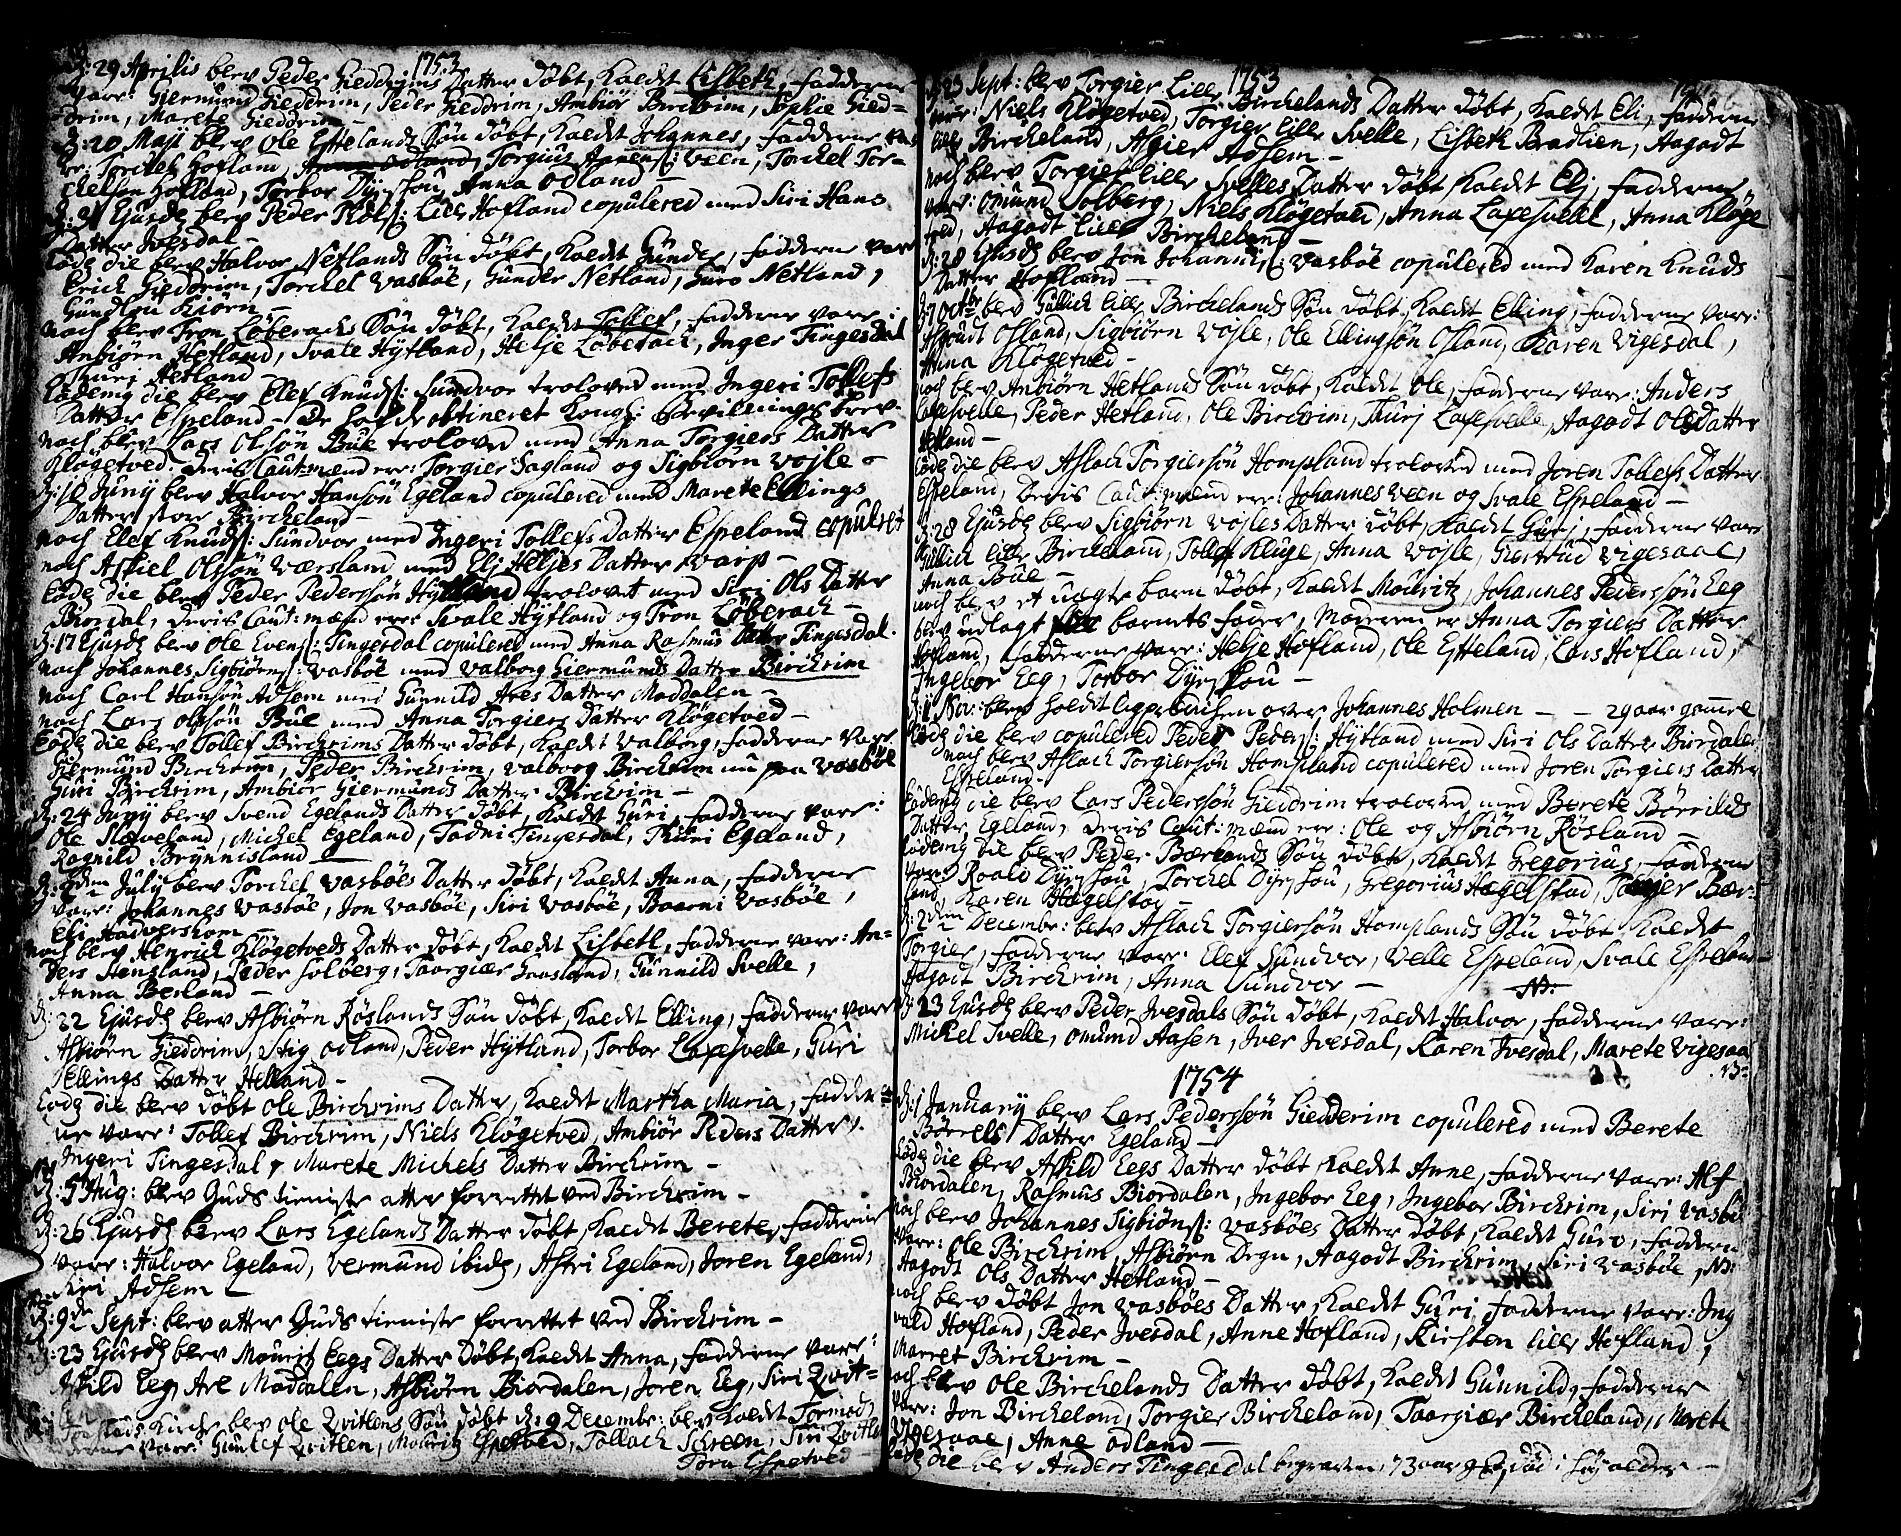 1753
d: 29 Aprilis blev Peder Gieddrims Datter døbt, kaldt Lisbeth, fadderne
vare: Giermund Gieddrim, Peder Gieddrim, Ambiør Birchrim, Sophie Gied-
drim, Marete Gieddrim —
d: 20 Maji blev Ole Espelands Søn døbt, kaldt Johannes, fadderne va-
re: Torchel Hofland, Torgius Annens: Veen, Torchel Tor-
chelsen Hofland, Torbor Dyrskou, Anna Odland —
d: 31 Ejusd: blev Peder Rols: Lille Hofland copulered med Siri Hans
Datter Jvesdal
Eode die blev Halvor Netlands Søn døbt, kaldt Gunder, fadderne vare
Erich Gieddrim, Torchel Vasbøe, Gunder Netland, Guro Netland,
Gundlou Kiørn
noch blev Tron Løberachs Søn døbt, kaldt Tollef, fadderne vare:
Anbiørn Hetland, Svale Hÿtland, Helje Løberach, Inger Tingesdal
Thuri Hetland
Eodemq die blev Elef Knuds: Sundvor troloved med Ingeri Tollefs
Datter Espeland — De hafde obtineret Kongl: Bevillings brev.
noch blev Lars Olsøn Bue trolovet med Anna Torgiers Datter
Kløgetved. Deris Caut:mænd ere: Torgier Sagland og Sigbiørn Vosle —
d: 10 Junÿ blev Halvor Hansøn Egeland copulered med Marete Ellings
Datter store Bircheland —
noch Elef Knuds: Sundvor med Ingeri Tollefs Datter Espeland copulret
noch Askiel Olsøn Værsland med Elj Heljes Datter Svarp —
Eode die blev Peder Pedersøn Hÿtland trolovet med Siri Ols Datter
Biordal, deris Caut:mænd ere Svale Hÿtland og Tron Løberach —
d: 17 Ejusd: blev Ole Evens: Tingesdal copulered med Anna Rasmus Datter Tingesdal.
noch Johannes Sigbiørns: Vasbøe med Valborg Giermunds Datter Birchrim
noch Carl Hansøn Adsem med Gunnild Aves Datter Maddalen —
noch Lars Olsøn Bue med Anna Torgiers Datter Kløgetved —
Eode die blev Tollef Birchrims Datter døbt, kaldt Valborg, fadderne vare
Giermund Birchrim, Peder Birchrim, Valborg Birchrim nu paa Vasbøe
Guri Birchrim, Ambiør Giermunds Datter Birchrim —
d: 24 Junÿ blev Svend Egelands Datter døbt, kaldt Guri, fadderne vare:
Ole Slæveland, Michel Egeland, Tadni Tingesdal, Thuri Egeland,
Ragnild Brÿnnisland —
d: 8den Julÿ blev Torchel Vasbøes Datter døbt, kaldt Anna, fadderne
vare: Johannes Vasbøe, Jon Vasbøe, Siri Vasbøe, Baarni Vasbøe,
Eli Hadvershom —
noch blev Henrich Kløgetveds Datter døbt, kaldt Lisbeth, fadderne vare: An-
ders Stensland, Peder Solberg, Taargiær Gaasland, Gunnild Svelle,
Anna Berland —
d: 22 Ejusd: blev Asbiørn Røslands Søn døbt, kaldt Elling, fadderne vare
Asbiørn Gieddrim, Stig Odland, Peder Hÿtland, Torbor Laxesvelle, Guri
Ellings Datter Helland —
Eode die blev døbt Ole Birchrims Datter, kaldt Martha Maria, fadder-
ne vare: Tollef Birchrim, Niels Kløgetved, Ambiør Peders Datter,
Ingeri Tingesdal & Marete Michels Datter Birchrim —
d: 5 Aug: blev Guds tieniste atter forrettet ved Birchrim —
d: 26 Ejusd: blev Lars Egelands Datter døbt, kaldt Berete, fadderne
vare: Halvor Egeland, Vermund ibid:, Astri Egeland, Joren Egeland,
Siri Adsem —
d: 9de Sept: blev atter Guds tieniste forrettet ved Birchrim —
d: 23 Ejusd: blev Mourits Eegs Datter døbt, kaldt Anna, fadderne vare:
Askild Eeg, Are Maddalen, Asbiørn Biordalen, Joren Eeg, Siri Qvit-
len
Kirche blev Ole Qvitlens Søn døbt d: 9 Decembr: blev kaldt Tormod,
derne vare: Gunlef Qvitlen, Mouritz Espetved, Tollach Schreen, Siri Qvitlen
Toru Espetved

1753
d: 23 Sept: blev Torgier Lille Birchelands Datter døbt, kaldt Eli, fadderne
vare: Niels Kløgetved, Torgier Lille Svelle, Lisbeth Bradlien, Aagodt
lille Bircheland, Asgier Adsem —
noch blev Torgier Lille Svelles Datter døbt, kaldt Elj, fadderne
vare: Omund Solberg, Niels Kløgetved, Anna Laxesvelle, Anna Kløge
tved, Aagodt Lille Bircheland —
d: 28 Ejusd: blev Jon Johannes: Vasbøe copulered med Karen Knuds
Datter Hofland —
d: 7 Octbr blev Gullich Lille Birchelands Søn døbt, kaldt Elling, fadderne vare:
Asgudt Ofland, Sigbiørn Vosle, Ole Ellingsøn Ofland, Karen Vigesdal,
Anna Kløgetved —
noch blev Anbiørn Hetlands Søn døbt, kaldt Ole, fadderne vare: Anders
Laxesvelle, Peder Hetland, Ole Birchrim, Thurj Laxesvelle, Aagodt Olsdatter
Hetland —
Eode die blev Aslach Torgiersøn Hompland trolovet med Joren Tollefs Datter
Espeland, Deris Caut:mænd ere: Johannes Veen og Svale Espeland —
d: 28 Ejusd: blev Sigbiørn Vosles Datter døbt, kaldt Guri, fadderne vare
Gullich Lille Bircheland, Tollef Kluge, Anna Vosle, Giertrud Vigesaae,
Anna Bue —
noch blev et uægte barn døbt, kaldt Mouritz, Johannes Pedersøn Eeg
blev udlagt barnets fader, Moderen er Anna Torgiers Datter
Hofland, fadderne vare: Helje Hofland, Ole Espeland, Lars Hofland,
Ingebor Eeg, Torbor Dyrskou —
d: 11 Nov: blev holdt ligprædichen over Johannes Holmen — — 29 aar gamel
Eode die blev copulered Peder Peders: Hÿtland med Siri Ols Datter Biordalen
noch blev Aslach Torgiersøn Hompland copulered med Joren Torgiers Datter
Espeland.
Eodemq die blev Lars Pedersøn Gieddrim trolovet med Berete Børrilds
Datter Egeland, Deris Caut:mænd ere: Ole og Asbiørn Røsland —
Eodemq die blev Peder Bærlands Søn døbt, kaldt Gregorius, fadderne
vare Roald Dyrskou, Torchel Dyrskou, Gregorius Hægelstad, Torgier Bær-
land, Karen Hægelstad —
d: 2den Decembr: blev Aslach Torgiersøn Homplands Søn døbt, kaldt
Torgier, fadderne vare: Elef Sundvor, Velle Espeland, Svale Espeland
Aagodt Birchrim, Anna Sundvor —
NB.
d: 23 Ejusd: blev Peder Jvesdals Søn døbt, kaldt Halvor, fadderne vare:
Michel Svelle, Omund Aasen, Jver Jvesdal, Karen Jvesdal, Marete Vigesaa
1754
d: 1 Januarÿ blev Lars Pedersøn Giedderim copulered med Berete
Børrels Datter Egeland —
Eode die blev Askild Eegs Datter døbt, kaldt Anne, fadderne vare: Alf
Biordalen, Rasmus Biordalen, Ingebor Eeg, Ingebor Birchrim, Siri Vasbø
noch blev Johannes Sigbiøns: Vasbøes Datter døbt, kaldt Guro, faddern
vare: Ole Birchrim, Asbiørn Degn, Aagodt Birchrim, Siri Vasbøe, NB:
Aagodt Ols Datter Hetland —
noch blev døbt Jon Vasbøes Datter, kaldt Guri, fadderne vare: Ing
vald Hofland, Peder Jvesdal, Anne Hofland, Kirsten Lille Hofland,
Marret Birchrim —
noch blev Ole Birchelands Datter døbt, kaldt Gunnild, fadderne
vare: Jon Bircheland, Torgier Bircheland, Taargiær Bircheland, Marete
Vigesaae, Anne Odland —
Eode die blev Anders Tingesdal begraven, 73 aar gl, død i høÿ alder —